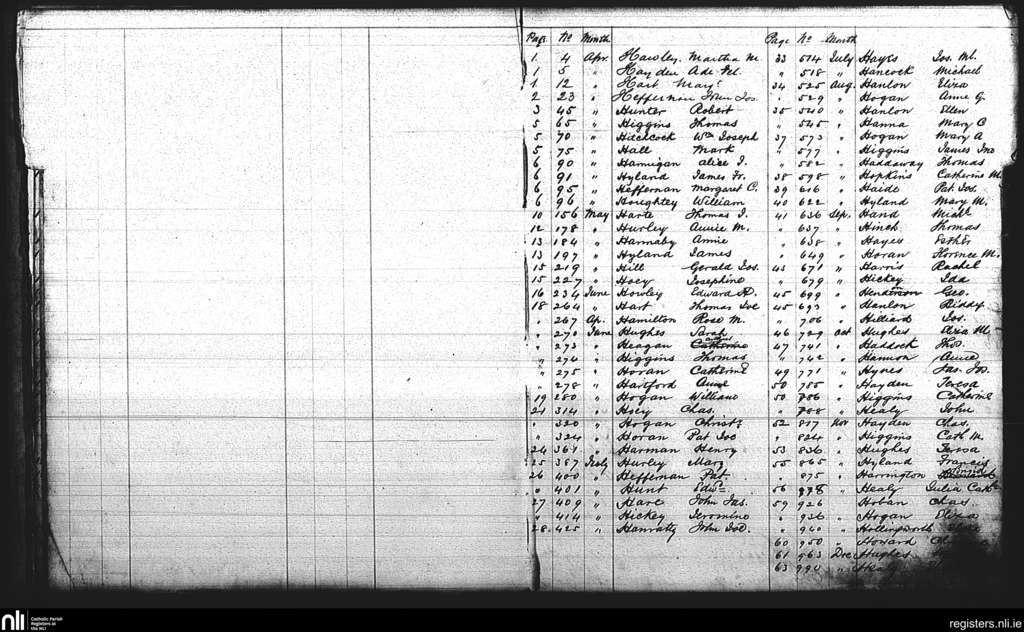 Page No Month
1 4 Apr. Hawley, Martha M.
1 5 " Hayden Ade
1 12 " Hart Mary
2 23 " Heffernan John Jos.
3 45 " Hunter Robert
5 65 " Higgins Thomas
5 70 " Hitchcock Wm Joseph
5 75 " Hall Mark
6 90 " Hannigan Alice J.
6 91 " Hyland James Fr.
6 95 " Heffernan Margaret C.
6 96 " Houghtey William
10 156 May Harte Thomas J.
12 178 " Hurley Annie M.
13 184 " Hannaby Annie
13 197 " Hyland James
15 219 " Hill Gerald Jos.
15 227 " Hoey Josephine
16 234 June Howley Edward
18 264 " Hart Thomas Joe
" 267 Ap. Hamilton Rose M.
" 270 June Hughes Sarah
" 273 " Heagan Catherine
" 274 " Higgins Thomas
" 275 " Horan Catherine
" 278 " Hartford Anne
19 280 " Hogan William
21 314 " Hoey Chas.
" 320 " Hogan Christ
" 324 " Horan Pat Joe
24 361 " Harman Henry
25 387 July Hurley Mary
26 400 " Heffernan Pat.
" 401 " Hunt Edwd
27 409 " Hare John Jas.
" 414 " Hickey Jeromino
28 425 " Hanratty John Joe.
Page No Month
33 514 July Hayes Jos. Ml.
" 518 " Hancock Michael
34 525 Aug. Hanlon Eliza
" 529 " Hogan Anne G.
35 540 " Hanlon Ellen
" 545 " Hanna Mary C
37 573 " Hogan Mary A
" 577 " Higgins James Jno
" 582 " Haddaway Thomas
38 598 " Hopkins Catherine M.
39 616 " Haide Pat. Jos.
40 622 " Hyland Mary M.
41 636 Sep. Hand Michl
" 637 " Hinch Thomas
" 638 " Hayes Esther
" 649 " Horan Florence M.
43 671 " Harris Rachel
" 679 " Hickey Ida
45 699 " Henderson Geo.
45 693 " Hanlon Biddy
" 706 " Hilliard Jos.
46 729 Oct Hughes Eliza M
47 741 " Haddock Thos.
" 742 " Hannon Annie
49 771 " Hynes Jas. Jos.
50 785 " Hayden Teresa
50 786 " Higgins Catherine
" 788 " Healy John
52 817 Nov Hayden Chas.
" 824 " Higgins Cath M.
53 836 " Hughes Teresa
55 865 " Hyland Francis
" 875 " Harrington
56 " Healy Julia Cath
59 926 " Hoban Chas.
" 936 " Hogan Eliza
" 940 " Hollingsworth
60 950 " Howard
61 963 Dec Hughes
63 990 " Healy
nli Catholic Parish
Registers at
the NLI
registers.nli.ie